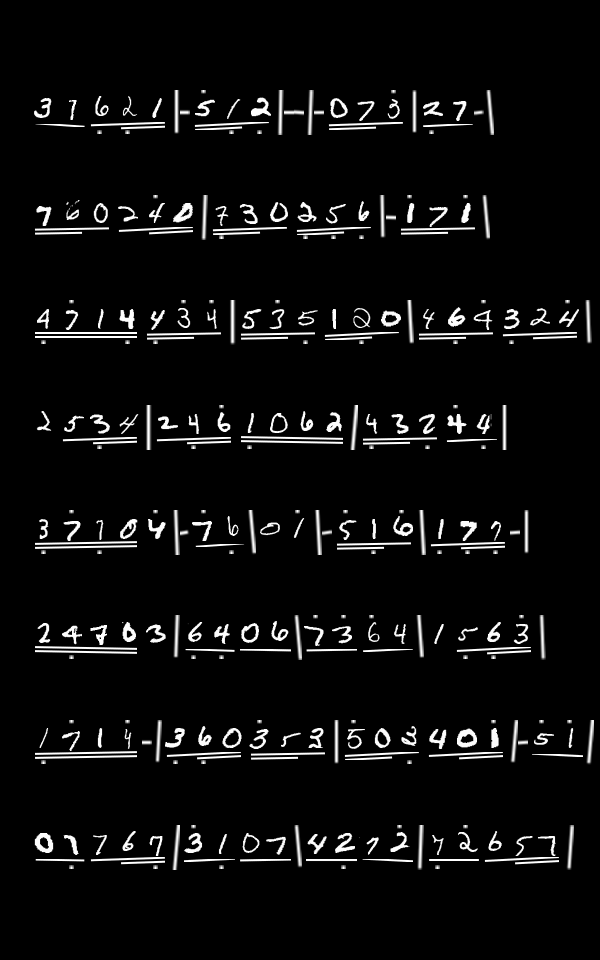 3 7 6 2 1 | - 5 1 2 | - | - 0 7 3 | 2 7 - |
7 6 0 2 4 0 | 7 3 0 2 5 6 | - 1 7 1 |
4 7 1 4 4 3 4 | 5 3 5 1 2 0 | 4 6 4 3 2 4 |
2 5 3 4 | 2 4 6 1 0 6 2 | 4 3 2 4 4 |
3 7 1 0 4 | - 7 6 | 0 1 | - 5 1 6 | 1 7 7 - |
2 4 7 0 3 | 6 4 0 6 | 7 3 6 4 | 1 5 6 3 |
1 7 1 4 - | 3 6 0 3 5 3 | 5 0 3 4 0 1 | - 5 1 |
0 7 7 6 7 | 3 1 0 7 | 4 2 7 2 | 7 2 6 5 7 |